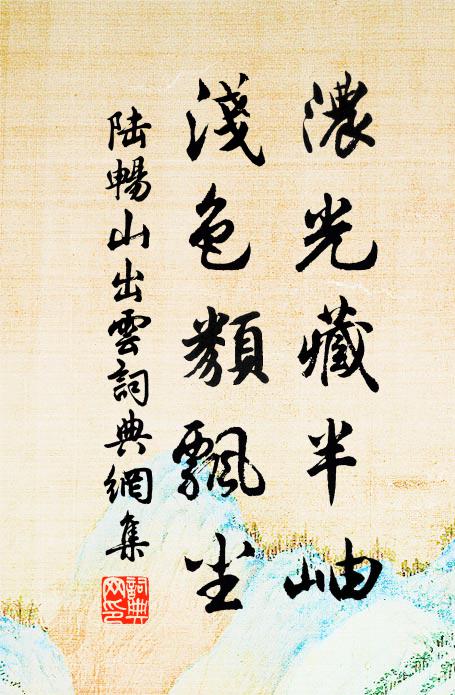 濃光藏半岫
淺色類飄塵
陸暢山出雲詞典網集
詞典網印